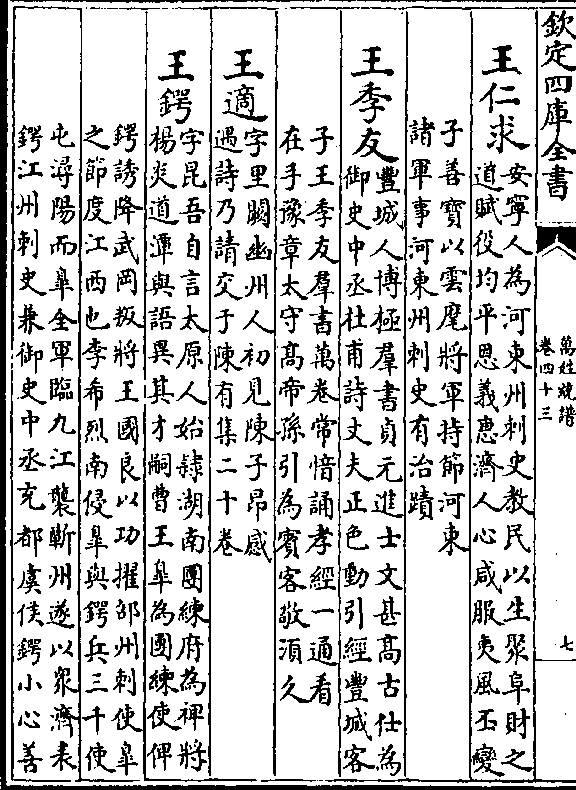 欽定四庫全書
萬姓統譜
卷四十三
七
王仁求
安寧人為河東州刺史教民以生聚阜財之
道賦役均平恩義惠濟人心咸服夷風丕變
子善寶以雲麾將軍持節河東
諸軍事河東州刺史有治蹟
王季友
豐城人博極羣書貞元進士文甚髙古仕為
御史中丞杜甫詩丈夫正色動引經豐城客
子王季友羣書萬卷常愔誦孝經一通看
在手豫章太守髙帝孫引為賓客敬湏久
王適
字里闕幽州人初見陳子昂感
遇詩乃請交于陳有集二十卷
王鍔
字昆吾自言太原人始隷湖南團練府為裨將
楊炎道潭與語異其才嗣曹王臯為團練使俾
鍔誘降武岡叛將王國良以功擢邵州刺使臯
之節度江西也李希烈南侵臯與鍔兵三千使
屯潯陽而臯全軍臨九江襲蘄州遂以衆濟表
鍔江州刺史兼御史中丞充都虞侯鍔小心善